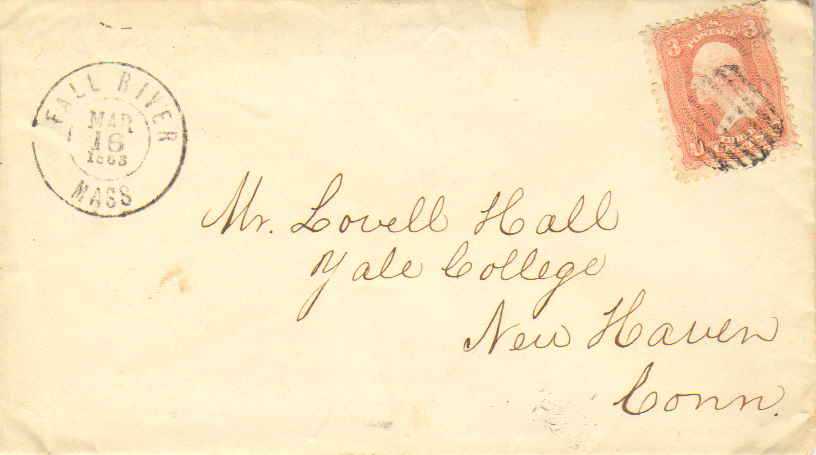 FALL RIVER
MAR
16
1863
MASS
3 U.S. POSTAGE 3
Mr. Lovell Hall
Yale College
New Haven
Conn.